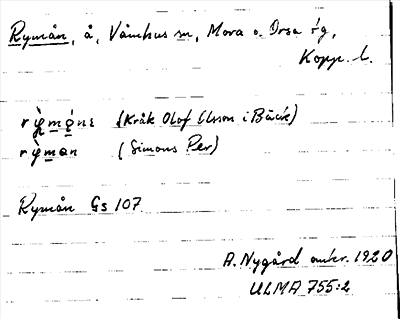 Rymån, å, Våmhus sn, Mora o. Orsa tg,
Kopp. l.
(Kråk Olof Olsson i Bäck)
(Simons Per)
Rymån Gs 107
A. Nygård ant. 1920
ULMA 755:2